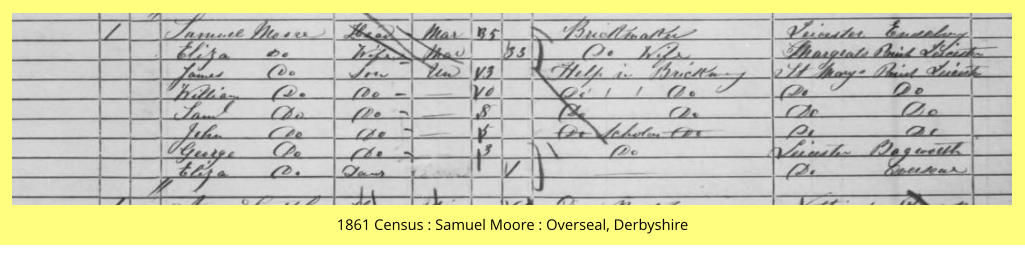 1 Samuel Moore Head Mar 35 Brickmaker Leicester
Eliza Do Wife Mar 33 Do Wife Margrats Leicester
James Do Son Un 13 Help in St Marys Leicester
William Do Do Do Do Do
Sam Do Do 8 Do Do Do Do
John Do Do 5 Do Scholar Do Do Do
George Do Do 3 Do Leicester Bagworth
Eliza Do Daur Do Overseal
1861 Census : Samuel Moore : Overseal, Derbyshire